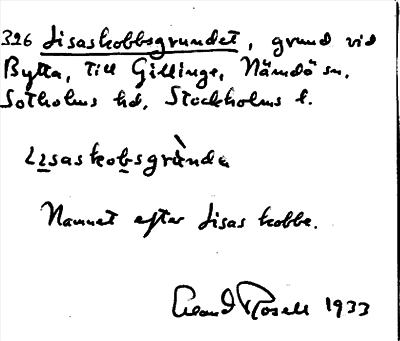 326 Lisaskobbsgrundet, grund vid
Bytta, till Gillinge, Nämdö sn,
Sotholms hd, Stockholms l.
Lisaskobsgrùnde
Namnet efter Lisas kobbe.
Erland Rosell 1933